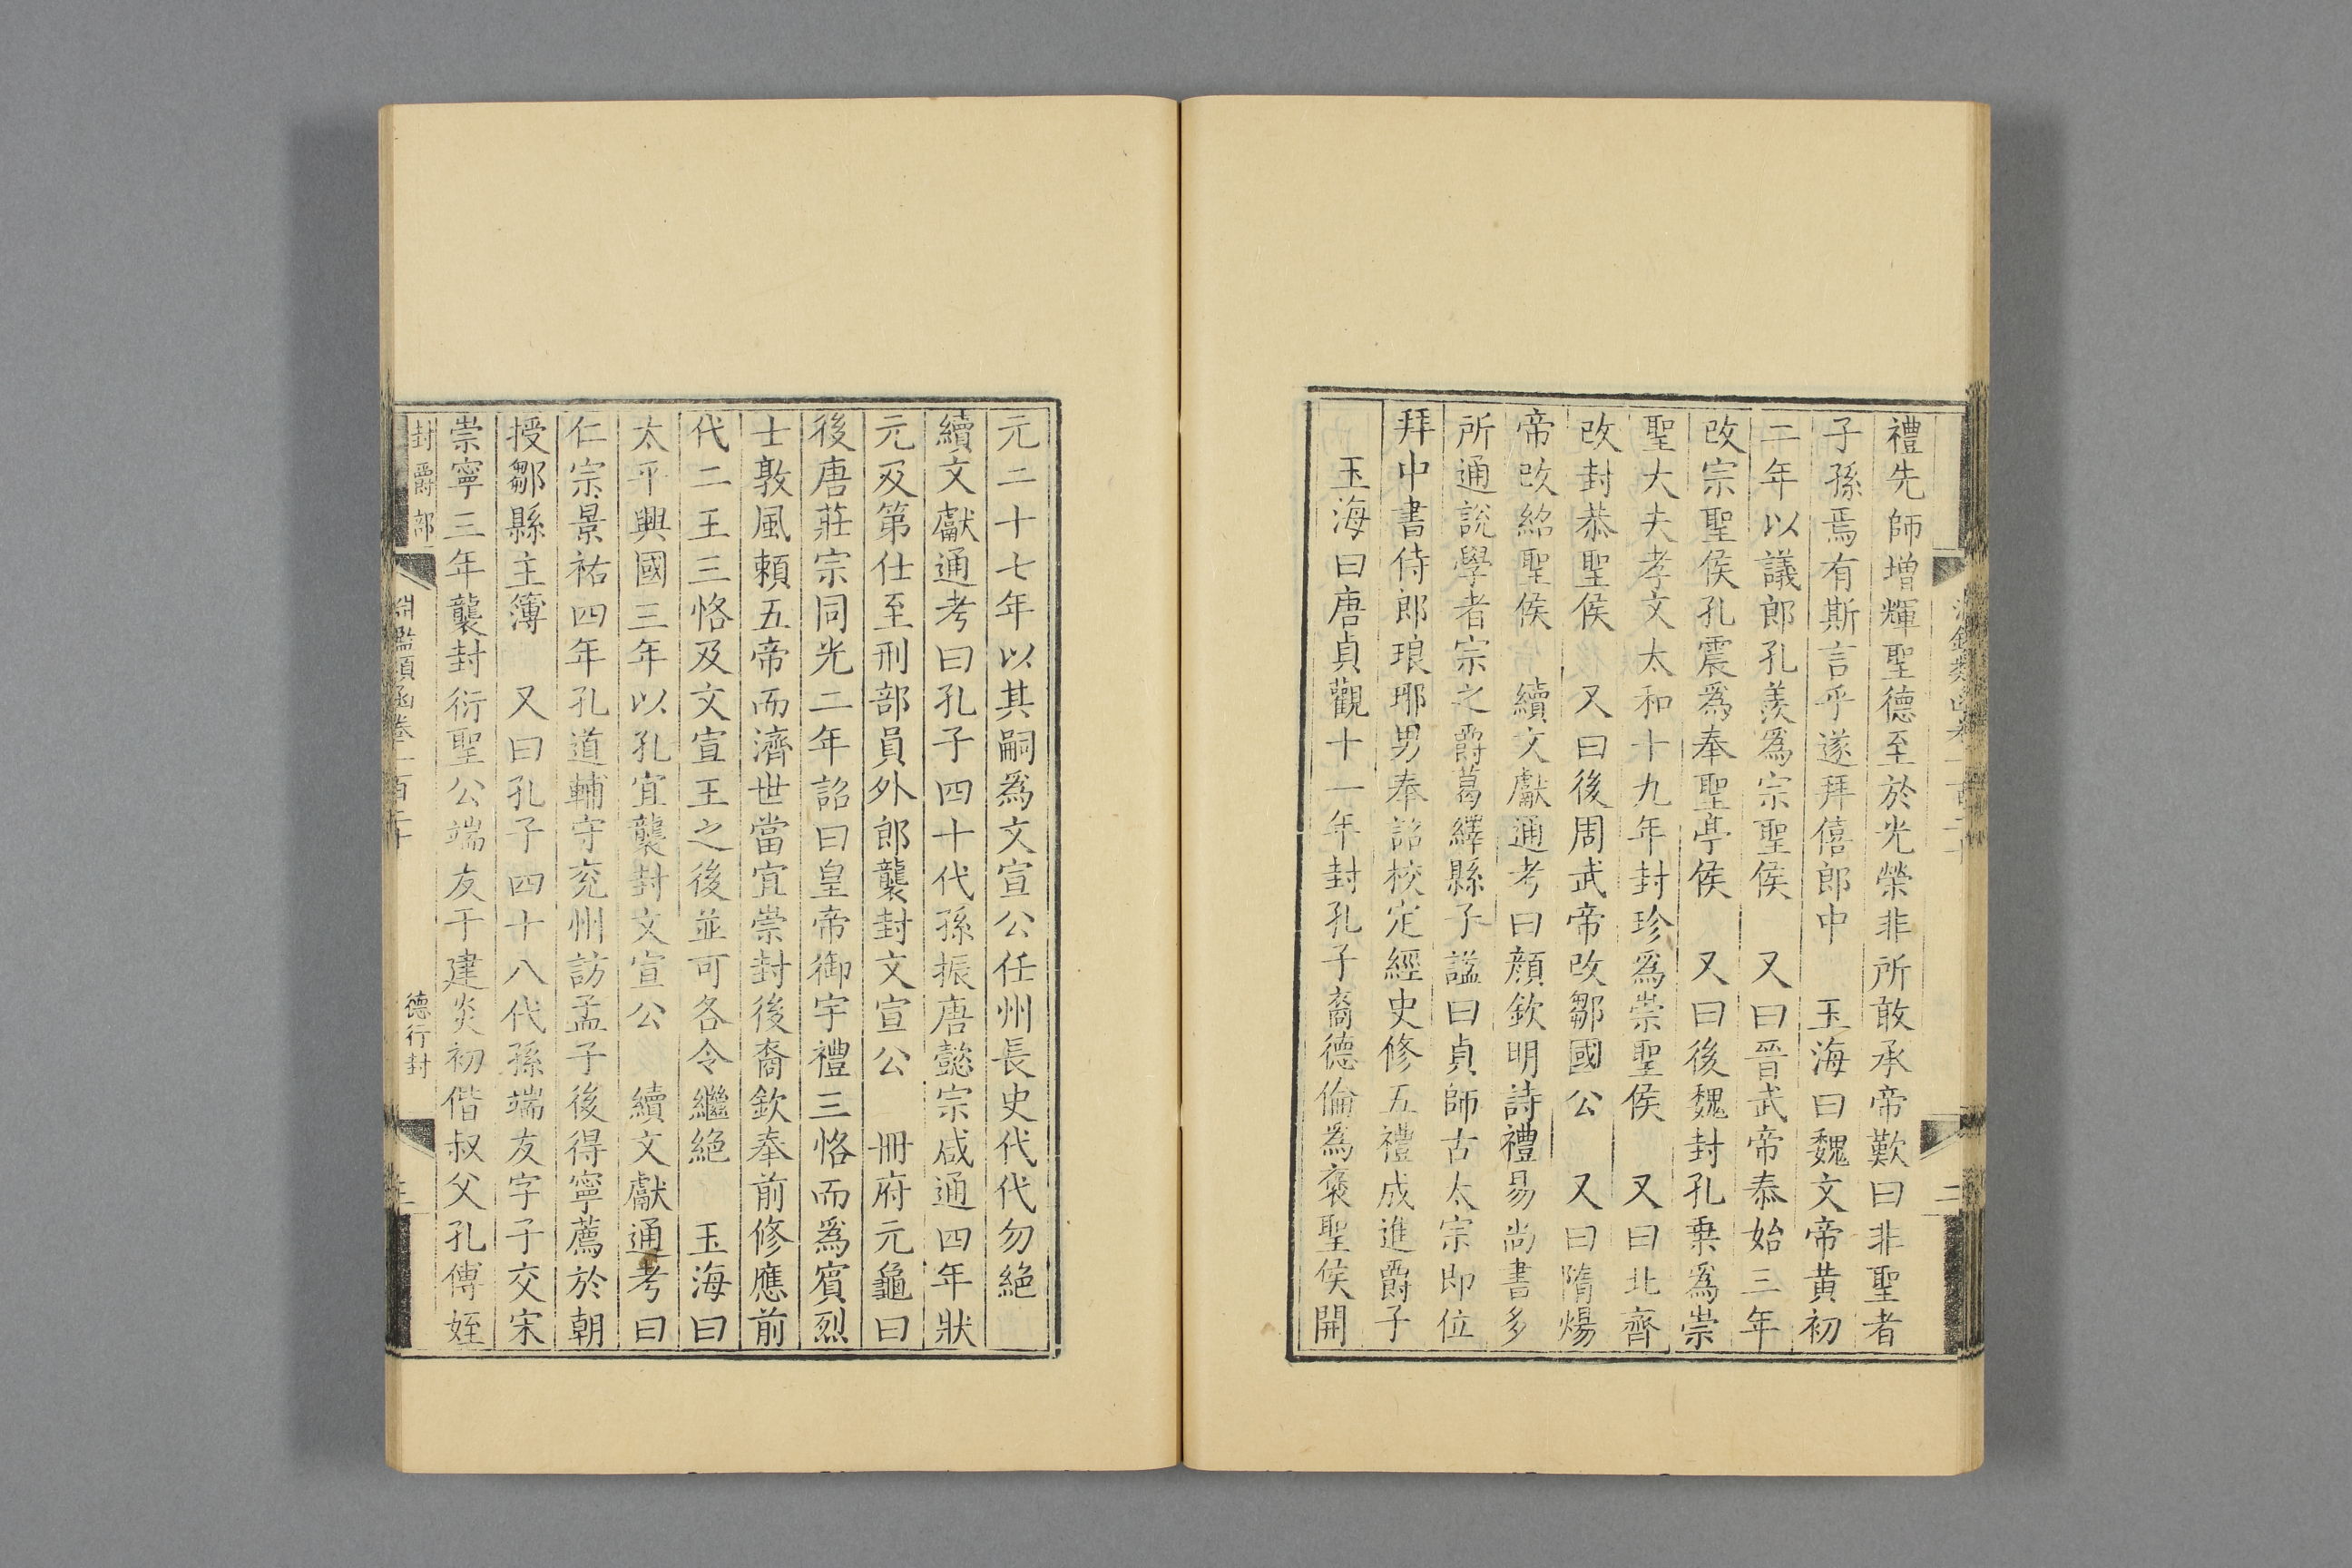 禮先師增輝聖德至於光榮非所敢承帝歎曰非聖者
子孫焉有斯言乎遂拜僖郎中　玉海曰魏文帝黃初
二年以議郎孔羨爲宗聖侯　又曰晉武帝泰始三年
改宗聖侯孔震爲奉聖亭侯　又曰後魏封孔乗爲崇
聖大夫孝文太和十九年封珍爲崇聖侯　又曰北齊
改封恭聖侯　又曰後周武帝改鄒國公　又曰隋煬
帝改紹聖侯　續文獻通考曰顔欽明詩禮易尚書多
所通說學者宗之爵葛繹縣子諡曰貞師古太宗即位
拜中書侍郎琅琊男奉詔校定經史修五禮成進爵子
玉海曰唐貞觀十一年封孔子裔德倫爲褒聖侯開
元二十七年以其嗣爲文宣公任州長史代代勿絕
續文獻通考曰孔子四十代孫振唐懿宗咸通四年狀
元及第仕至刑部員外郎襲封文宣公　冊府元龜曰
後唐莊宗同光二年詔曰皇帝御宇禮三恪而爲賓烈
士敦風頼五帝而濟世當宜崇封後裔欽奉前修應前
代二王三恪及文宣王之後並可各令繼絕　玉海曰
太平興國三年以孔宜襲封文宣公　續文獻通考曰
仁宗景祐四年孔道輔守兗州訪孟子後得寧薦於朝
授鄒縣主簿　又曰孔子四十八代孫端友字子交宋
崇寧三年襲封衍聖公端友于建炎初偕叔父孔傅姪
封爵部
淵鑑類函卷一百二十
德行封